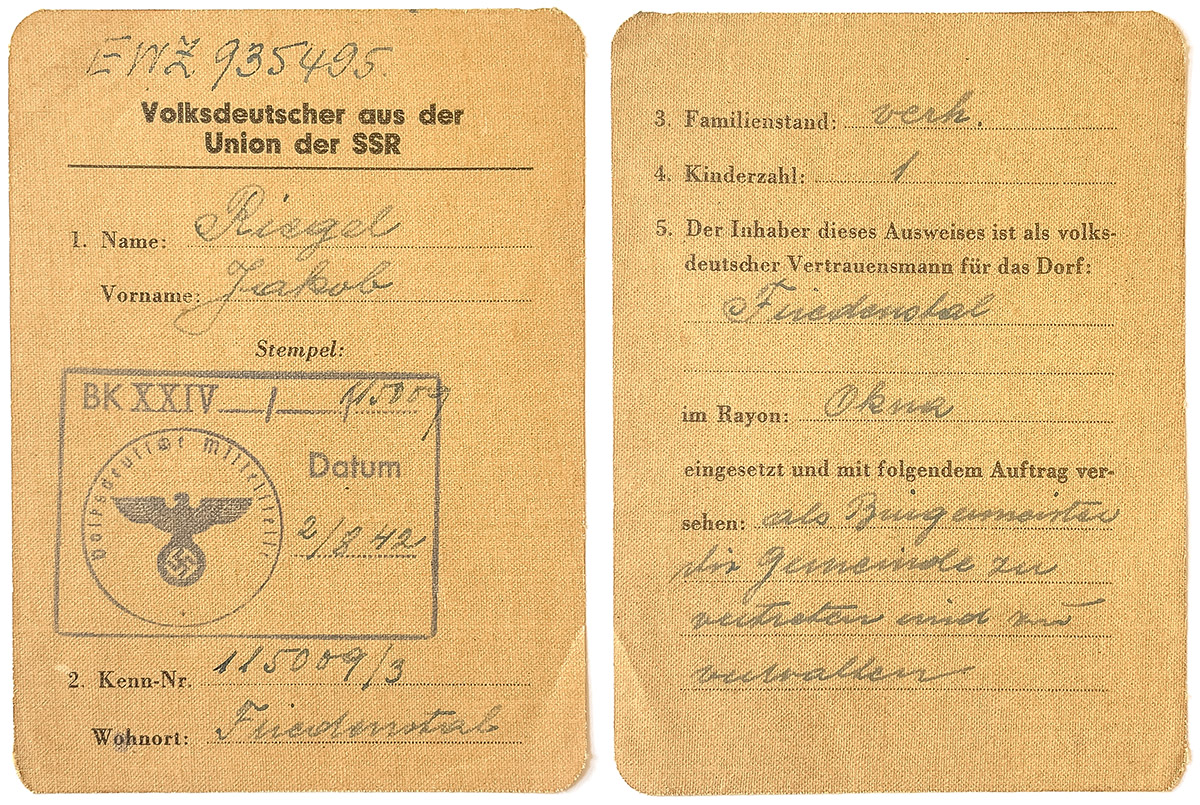 EWZ 935495.
Volksdeutscher aus der
Union der SSR
1. Name: Riegel
Vorname: Jakob
Stempel:
BK XXIV / 115009
Volksdeutsche Mittelstelle
Datum
2/8 42
2. Kenn-Nr. 115009/3
Wohnort: Friedenstal
3. Familienstand: verh.
4. Kinderzahl: 1
5. Der Inhaber dieses Ausweises ist als volks-
deutscher Vertrauensmann für das Dorf:
Friedenstal
im Rayon: Okna
eingesetzt und mit folgendem Auftrag ver-
sehen: als Bürgermeister
die Gemeinde zu
vertreten und zu
verwalten